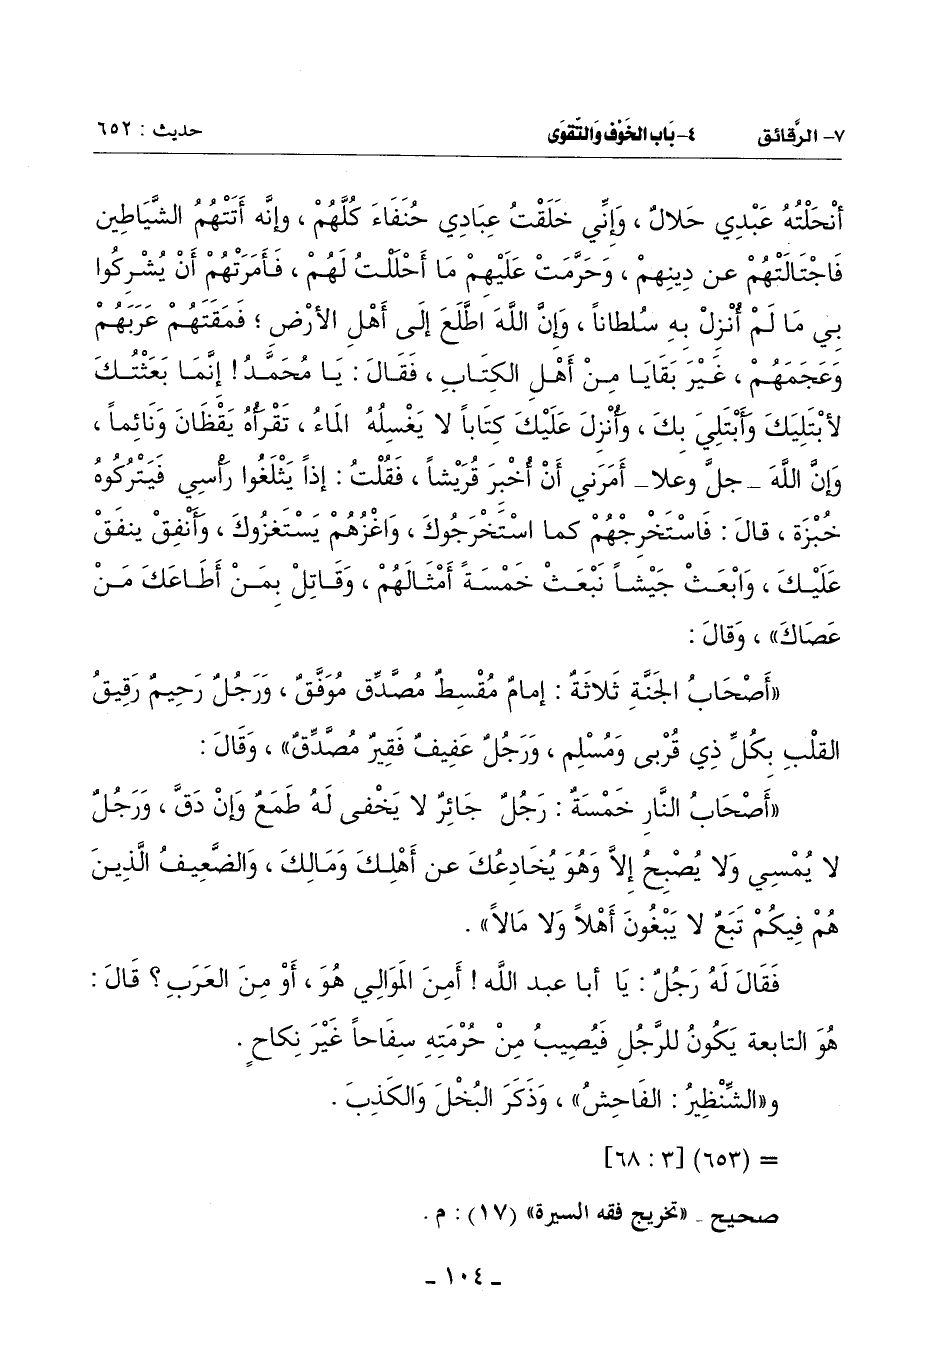 ٧- الرَّقائق ٤- بَاب الخَوْف وَالتَّقْوَى حديث : ٦٥٢
أنْحَلْتُهُ عَبْدِي حَلالٌ ، وَإِنِّي خَلَقْتُ عِبَادِي حُنَفَاءَ كُلَّهُمْ ، وإنَّه أَتَتْهُمُ الشَّيَاطِين
فَاجْتَالَتْهُمْ عن دِينِهِمْ ، وَحَرَّمَتْ عَلَيهِمْ مَا أَحْلَلْتُ لَهُمْ ، فَأَمَرَتْهُمْ أَنْ يُشْرِكُوا
بِي مَا لَمْ أُنْزِلْ بِهِ سُلطاناً ، وَإِنَّ اللَّهَ اطَّلَعَ إِلَى أَهْلِ الأرْضِ ؛ فَمَقَتَهُمْ عَرَبَهُمْ
وَعجَمَهُم ، غَيْرَ بَقَايَا مِنْ أهْلِ الكِتَابِ ، فَقَالَ : يَا مُحَمَّدُ ! إِنَّمَا بَعَثْتُكَ
لأبْتَلِيَكَ وَأَبْتَلِيَ بكَ ، وَأُنْزِلَ عَلَيْكَ كِتَاباً لا يَغْسِلُهُ المَاءُ ، تَقْرَأُهُ يَقْظَانَ وَنَائِماً ،
وَإِنَّ اللَّهَ ـ جلَّ وعلا ـ أَمَرَني أَنْ أُخْبِرَ قُرَيْشاً ، فَقُلْتُ : إذاً يَثْلَغُوا رَأْسِي فَيَتْرُكُوهُ
خُبْزَة ، قالَ : فَاسْتَخْرِجْهُمْ كما اسْتَخْرَجُوكَ ، وَاغْزُهُمْ يَسْتَغزُوكَ ، وَأَنْفِقْ ينفَقْ
عَلَيْكَ ، وَابْعَثْ جَيْشاً نَبْعَثْ خَمْسَةً أَمْثَالَهُمْ ، وَقَاتِلْ بِمَنْ أَطَاعَكَ مَنْ
عَصَاكَ» ، وَقالَ :
«أَصْحَابُ الجَنَّةِ ثَلاثَةٌ : إمامٌ مُقْسِطٌ مُصَّدِّق مُوَفَّقٌ ، وَرَجُلٌ رَحِيمٌ رَقِيقُ
القلْبِ بِكُلِّ ذِي قُرْبى وَمُسْلِمٍ ، وَرَجُلٌ عَفِيفٌ فَقِيرٌ مُصَّدِّقٌ» ، وَقَالَ :
«أَصْحَابُ النَّارِ خَمْسَةٌ : رَجُلٌ جَائِرٌ لا يَخْفى لَهُ طَمَعٌ وَإِنْ دَقَّ ، وَرَجُلٌ
لا يُمْسِي وَلا يُصْبِحُ إلاَّ وَهُوَ يُخَادِعُكَ عن أَهْلِكَ وَمَالِكَ ، وَالضَّعِيفُ الَّذِينَ
هُمْ فِيكُمْ تَبَعٌ لا يَبْغُونَ أَهْلاً وَلا مَالاً» .
فَقَالَ لَهُ رَجُلٌ : يَا أبا عبد الله ! أَمِنَ المَوَالِي هُوَ ، أَوْ مِنَ العَرَبِ ؟ قَالَ :
هُوَ التابعة يَكُونُ للرَّجُلِ فَيُصِيبُ مِنْ حُرْمَتِهِ سِفَاحاً غَيْرَ نِكَاحٍ .
و«الشِّنْظِيرُ : الفَاحِشُ» ، وَذَكَرَ البُخْلَ وَالكَذِبَ .
= (٦٥٣) [٣ : ٦٨]
صحيح ـ «تخريج فقه السيرة» (١٧) : م .
ـ ١٠٤ ـ